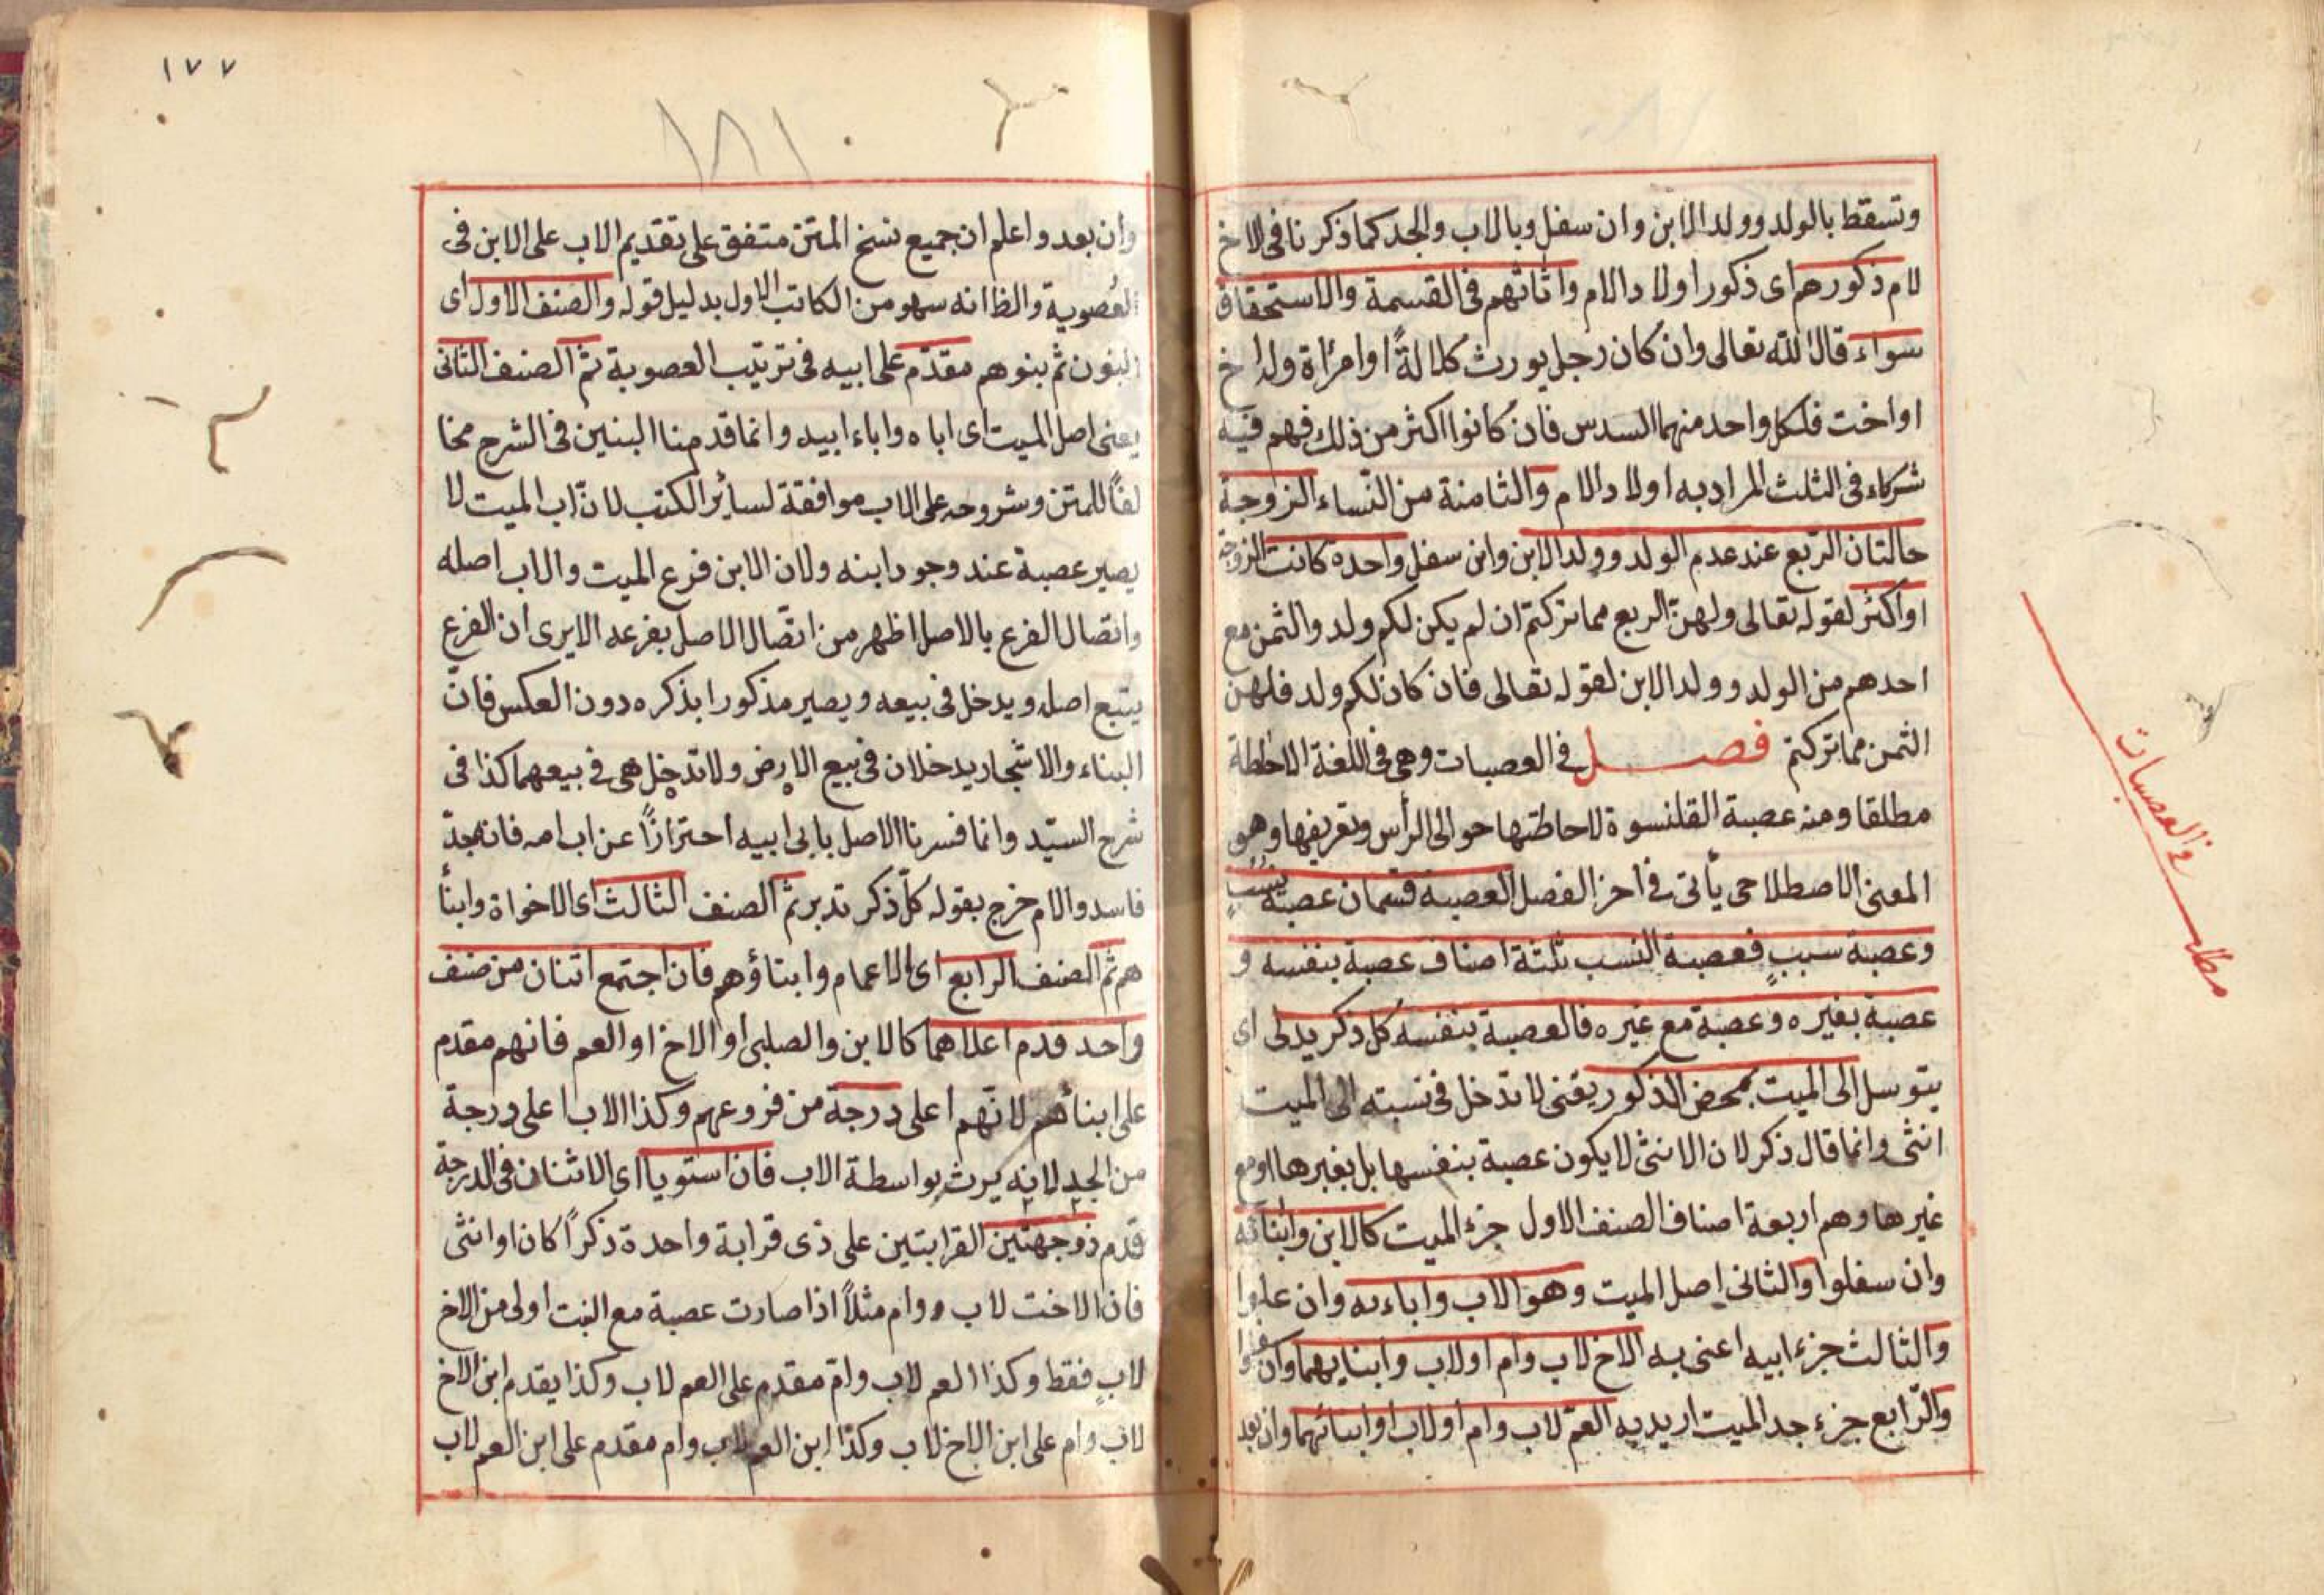 وتسقط بالولد وولد الابن وان سفل وبالاب والجد كما ذكرنا في الاخ
لام ذكورهم اى ذكور اولاد الام واناثهم فى القسمة والاستحقاق
سواء قال الله تعالى وان كان رجل يورث كلالةً او امرأة وله اخ
او اخت فلكل واحد منهما السدس فان كانوا اكثر من ذلك فهم فيه
شركاء فى الثلث المراد به اولاد الام والثامنة من النّساء الزوجة
حالتان الرّبع عند عدم الولد وولد الابن وان سفل واحدة كانت الزوجة
او اكثر لقوله تعالى ولهنّ الربع مما تركتم ان لم يكن لكم ولد والثمن مع
احدهم من الولد وولد الابن لقوله تعالى فان كان لكم ولد فلهن
الثمن مما تركتم فصل في العصبات وهى فى اللغة الاحاطة
مطلقا ومنه عصبة القلنسوة لاحاطتها حوالى الرأس وتعريفها وهو
المعنى الاصطلاحى يأتى فى اخر الفصل العصبة قسمان عصبة نسبٍ
وعصبة سببٍ فعصبة النسب ثلثة اصناف عصبة بنفسه و
عصبة بغيره وعصبة مع غيره فالعصبة بنفسه كل ذكر يدلى اى
يتوسل الى الميت بمحض الذكور يعنى لا تدخل فى نسبته الى الميت
انثى وانما قال ذكر لان الانثى لا يكون عصبة بنفسها بل بغيرها او مع
غيرها وهم اربعة اصناف الصنف الاول جزء الميت كالابن وابنائه
وان سفلوا والثانى اصل الميت وهو الاب واباءه وان علوا
والثالث جزء ابيه اعنى به الاخ لاب وام او لاب وابنايهما وان سفلوا
والرّابع جزء جد الميت اريد به العم لاب وام او لاب او ابنائهما وان بعد
مطلب في العصبات
١٧٧
١٨١
وان بعد واعلم ان جميع نسخ المتن متفق على تقديم الاب على الابن فى
العصوبة والظ انه سهو من الكاتب الاول بدليل قوله والصنف الاول اى
البنون ثم بنوهم مقدّم على ابيه فى ترتيب العصوبة ثم الصنف الثانى
يعنى اصل الميت اى اباه واباء ابيه وانما قدمنا البنين فى الشرح مخا
لفًا للمتن وشروحه على الاب موافقة لسائر الكتب لانّ اب الميت لا
يصير عصبة عند وجود ابنه ولان الابن فرع الميت والاب اصله
واتصال الفرع بالاصل اظهر من اتصال الاصل بفرعه الا يرى ان الفرع
يتبع اصله ويدخل فى بيعه ويصير مذكورا بذكره دون العكس فانّ
البناء والاشجار يدخلان فى بيع الارض ولا تدخل هى فى بيعهما كذا فى
شرح السيّد وانما فسرنا الاصل بابى ابيه احترازًا عن اب امه فانه جدّ
فاسد والام خرج بقوله كلّ ذكر تدبر ثم الصنف الثالث اى الاخواة وابنأ
هم ثم الصنف الرابع اى الاعمام وابناؤهم فان اجتمع اثنان من صنف
واحد قدم اعلاهما كالابن والصلبى او الاخ او العم فانهم مقدم
على ابنائهم لانّهم اعلى درجة من فروعهم وكذا الاب اعلى درجة
من الجد لانه يرث بواسطة الاب فان استويا اى الاثنان فى الدرجة
قدم ذو جهتين القرابتين على ذى قرابة واحدة ذكرًا كان او انثى
فان الاخت لاب وام مثلاً اذا صارت عصبة مع البنت اولى من الاخ
لابٍ فقط وكذا العم لاب وامّ مقدم على العم لاب وكذا يقدم ابن الاخ
لاب وام على ابن الاخ لاب وكذا ابن العم لاب وام مقدم على ابن العم لاب